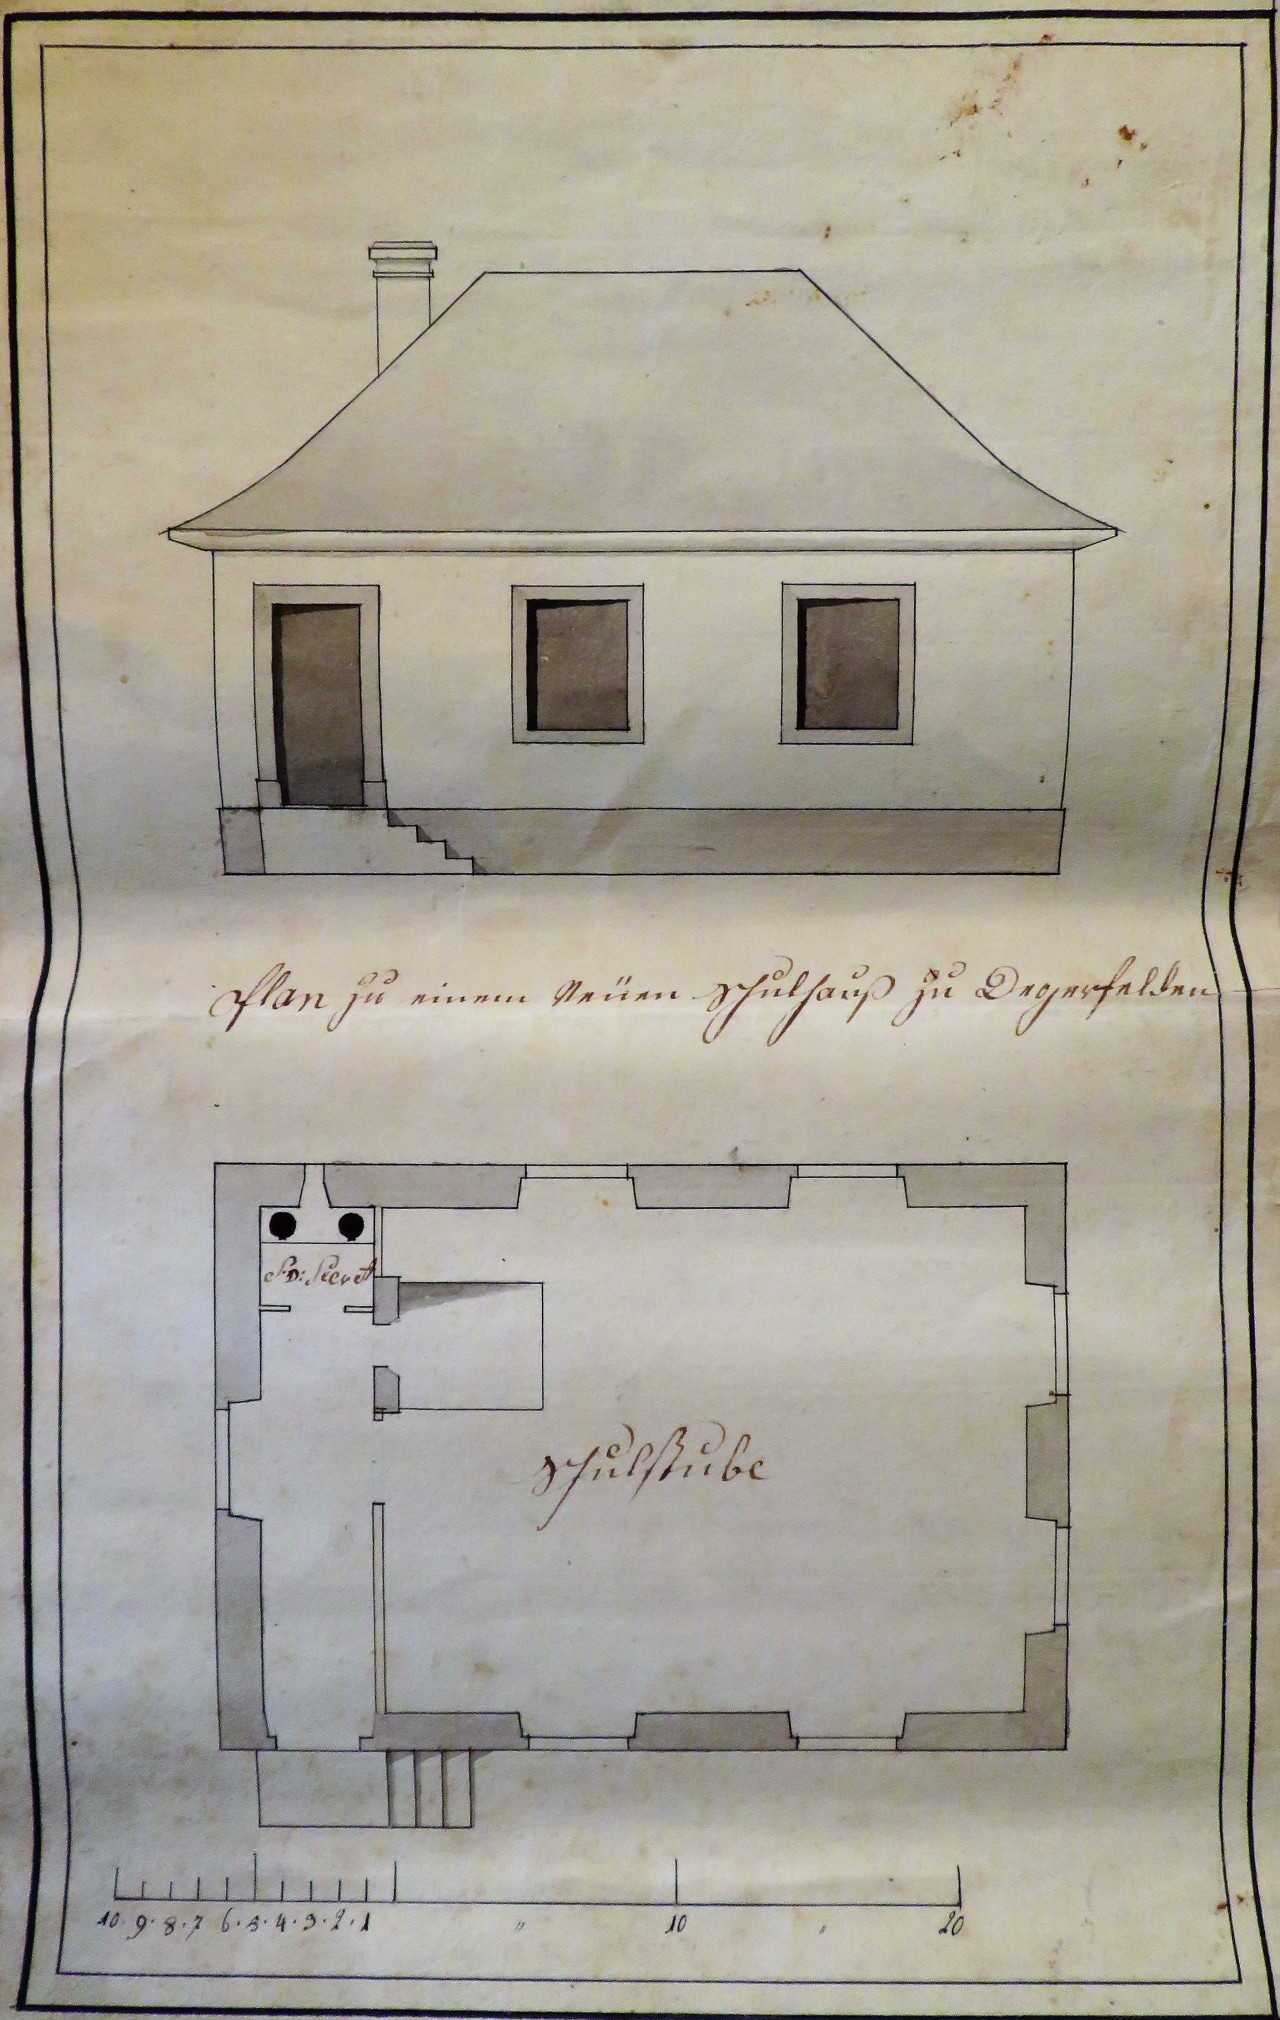 Plan zu einem Neüen Schulhauß zu Degerfelden
S:v: Secret
Schulstube
10 9 8 7 6 5 4 3 2 1 10 20